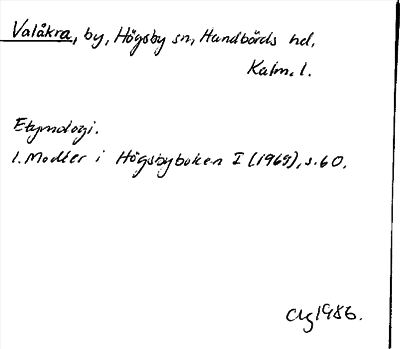 Valåkra, by, Högsby sn, Handbörds hd,
Kalm. l.
Etymologi.
I. Modéer i Högsbyboken I (1969), s. 60.
1986.